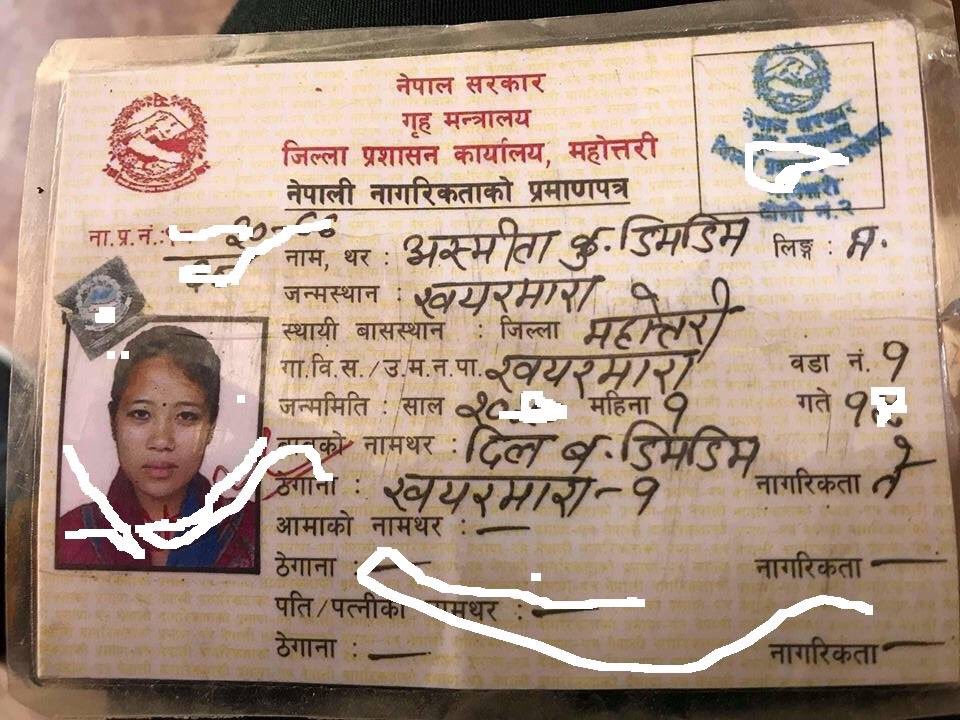 नेपाल सरकार
गृह मन्त्रालय
जिल्ला प्रशासन कार्यालय, महोत्तरी
नेपाली नागरिकताको प्रमाणपत्र
नेपाल सरकार
ना.प्र.नं.:
नाम, थर : अस्मीता कु. डिमडिम लिङ्ग : म.
जन्मस्थान : खयरमारा १
स्थायी बासस्थान : जिल्ला महोत्तरी
गा.वि.स./उ.म.न.पा. खयरमारा वडा नं. १
जन्ममिति : साल महिना १ गते
नामथर : दिल ब. डिमडिम
ठेगाना : खयरमारा-१ नागरिकता
आमाको नामथर : —
ठेगाना : — नागरिकता —
पति/पत्नीको नामथर : —
ठेगाना : — नागरिकता —